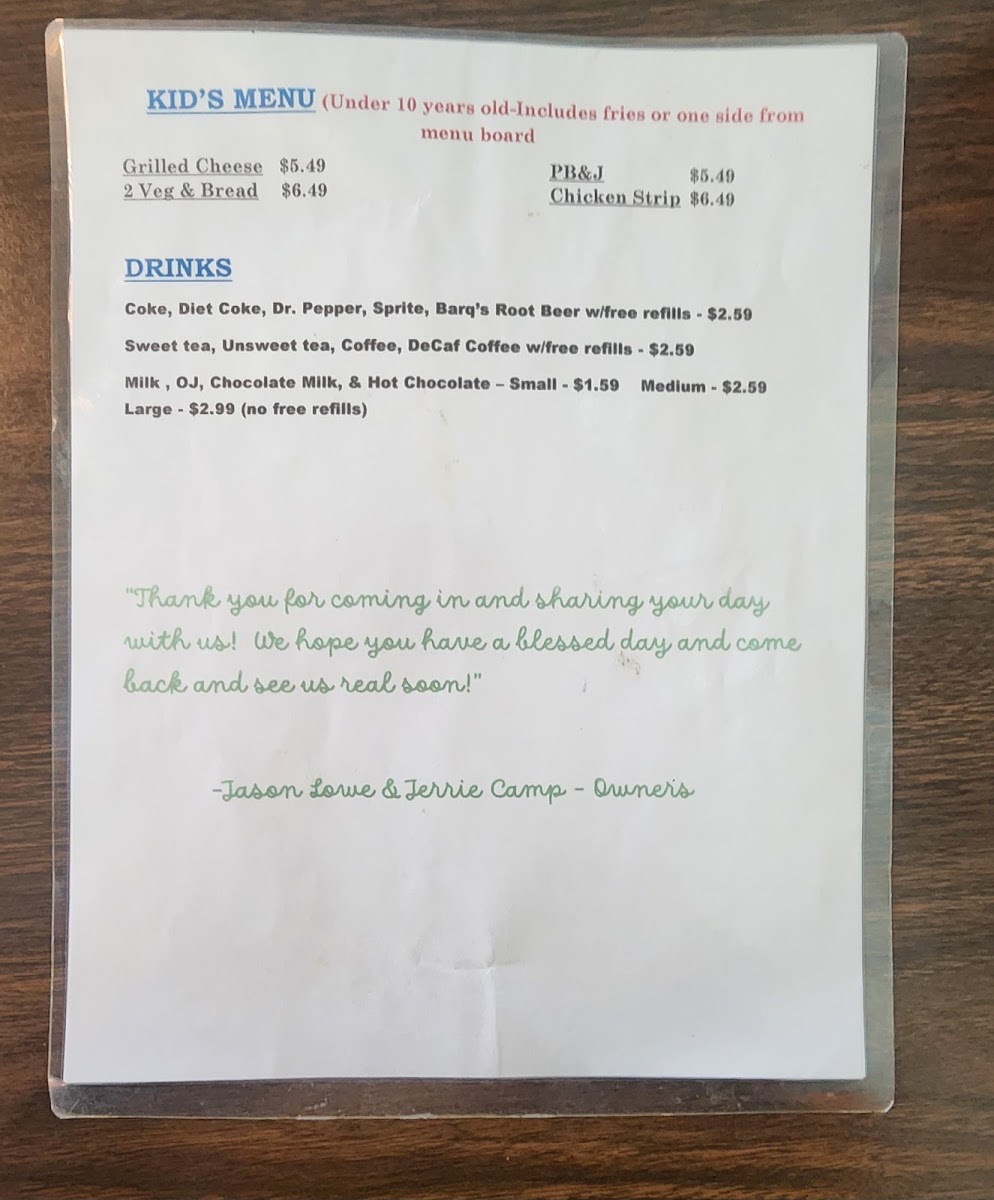 KID'S MENU (Under 10 years old-Includes fries or one side from
menu board
Grilled Cheese $5.49 PB&J $5.49
2 Veg & Bread $6.49 Chicken Strip $6.49
DRINKS
Coke, Diet Coke, Dr. Pepper, Sprite, Barq's Root Beer w/free refills - $2.59
Sweet tea, Unsweet tea, Coffee, DeCaf Coffee w/free refills - $2.59
Milk , OJ, Chocolate Milk, & Hot Chocolate – Small - $1.59 Medium - $2.59
Large - $2.99 (no free refills)
"Thank you for coming in and sharing your day
with us! We hope you have a blessed day and come
back and see us real soon!"
-Jason Lowe & Jerrie Camp - Owner's